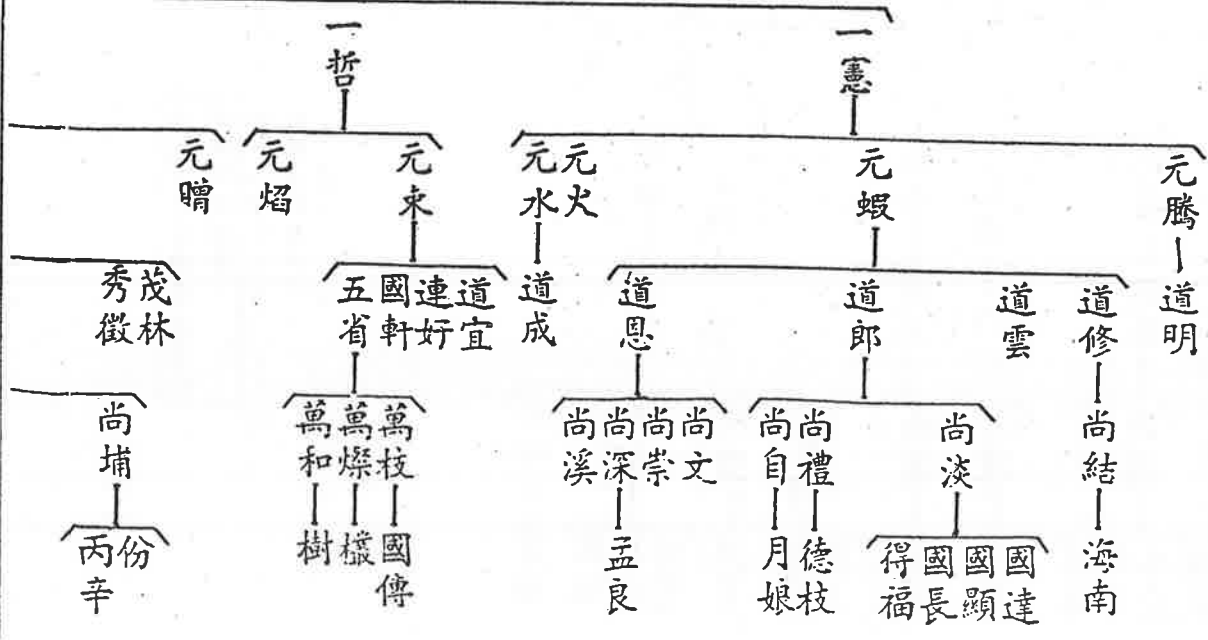 一憲
一哲
元騰
元蝦
元火
元水
元
元焰
元
道明
道修
道雲
道郎
道恩
道成
道宜
連好
國軒
五省
茂林
秀徵
尚結
尚淡
尚禮
尚自
尚文
尚崇
尚深
尚溪
萬枝
萬燦
萬和
尚埔
海南
國達
國顯
國長
得福
德枝
月娘
孟良
國傳
樹
份
丙辛